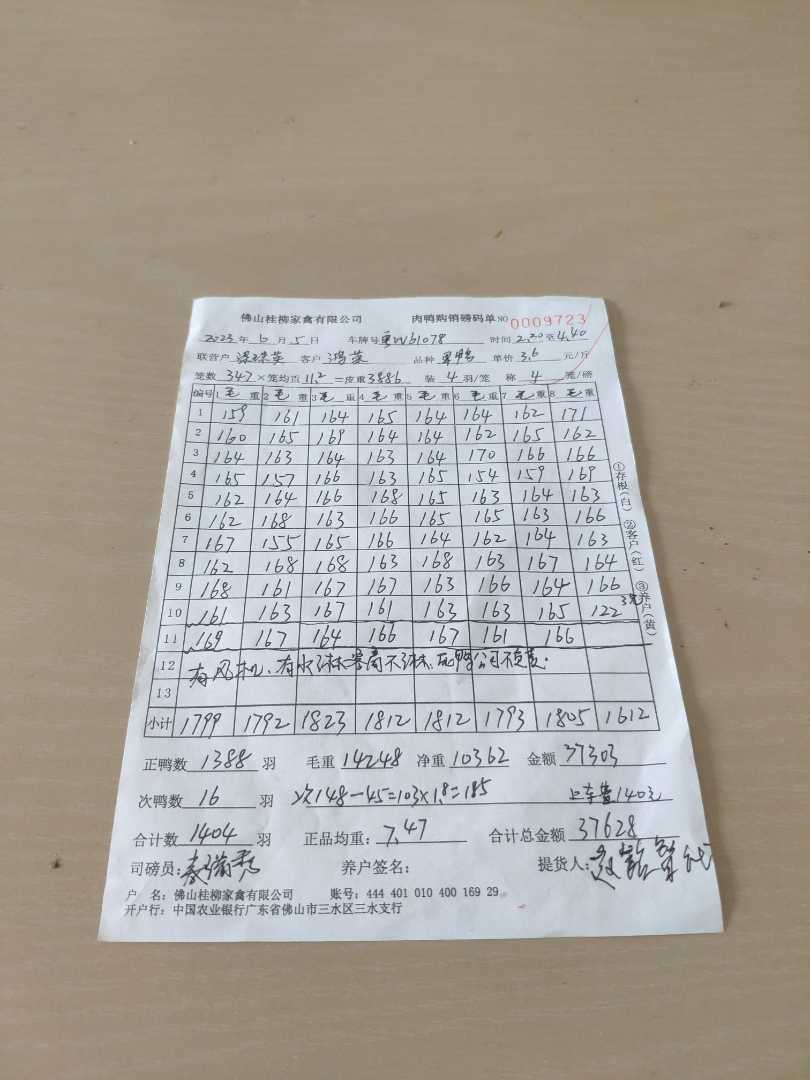 佛山桂柳家禽有限公司 肉鸭购销磅码单 NO 0009723
2023年6月5日 车牌号粤W61078 时间2.20至4.40
联营户 客户 鸿 品种 鸭 单价3.6元/斤
笼数347×笼均重11.2=皮重3886 装4羽/笼 称4笼/磅
编号 1毛重 2毛重 3毛重 4毛重 5毛重 6毛重 7毛重 8毛重
1 159 161 164 165 164 164 162 171
2 160 165 169 164 164 162 165 162
3 164 163 164 163 164 170 166 166
4 165 157 166 163 165 154 159 169
5 162 164 166 168 165 163 164 163
6 162 168 163 166 165 165 163 166
7 167 155 165 166 164 162 164 163
8 162 168 168 163 168 163 167 164
9 168 161 167 167 163 166 164 166
10 161 163 167 161 163 163 165 122 3笼
11 169 167 164 166 167 161 166
12 有风机、有水 不 死鸭公司不负责.
13
小计 1799 1792 1823 1812 1812 1793 1805 1612
①存根(白) ②客户(红) ③养户(黄)
正鸭数1388羽 毛重14248 净重10362 金额37303
次鸭数16羽 次148-45=103×1.8=185 上车费140元
合计数1404羽 正品均重:7.47 合计总金额37628
司磅员: 养户签名: 提货人:
户 名:佛山桂柳家禽有限公司 账号:444 401 010 400 169 29
开户行:中国农业银行广东省佛山市三水区三水支行